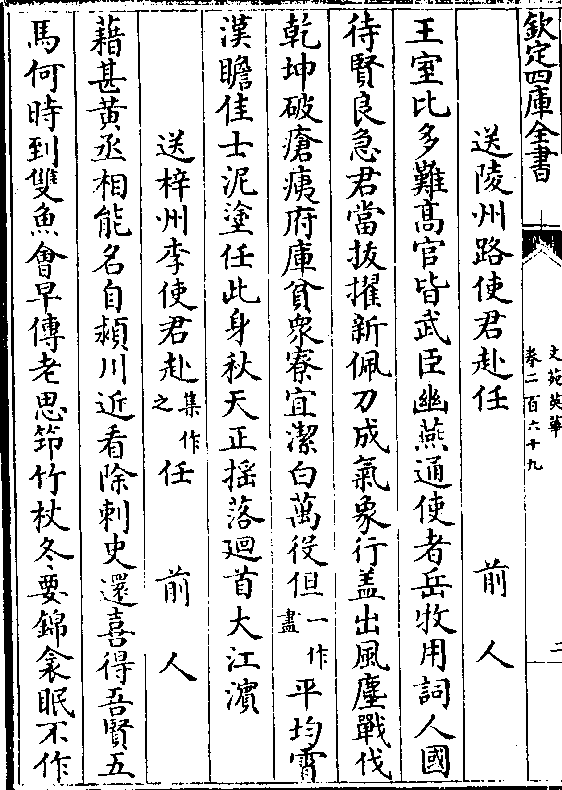 欽定四庫全書
文苑英華
卷二百六十九
二
送陵州路使君赴任 前人
王室比多難高官皆武臣幽燕通使者岳牧用詞人國
待賢良急君當拔擢新佩刀成氣象行盖出風塵戰伐
乾坤破瘡痍府庫貧衆寮宜潔白萬役但一作盡平均霄
漢瞻佳士泥塗任此身秋天正揺落廻首大江濵
送梓州李使君赴集作之任 前人
藉甚黄丞相能名自潁川近看除刺史還喜得吾賢五
馬何時到雙魚㑹早傳老思筇竹杖冬要錦衾眠不作